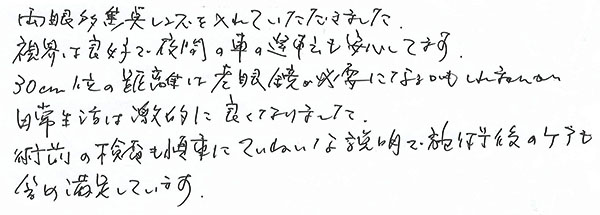 両眼多焦点レンズを入れていただきました.
視界は良好で夜間の車の運転も安心してます.
30cm位の距離は老眼鏡が必要になるかもしれませんが
日常生活は激的に良くなりました.
術前の検査も慎重にていねいな説明で施術後のケアも
含め満足しています.